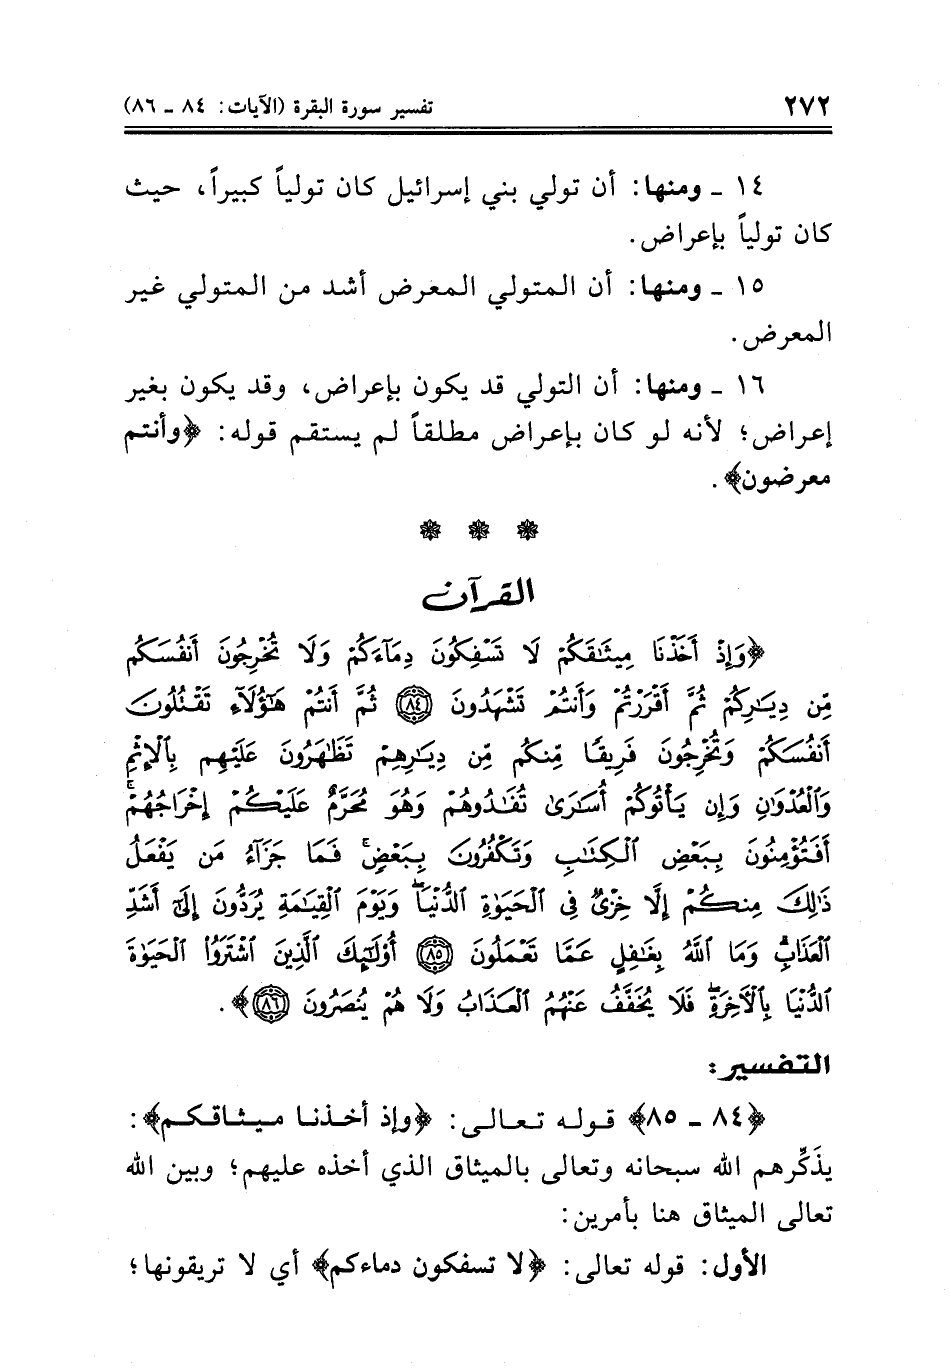 ٢٧٢ تفسير سورة البقرة (الآيات: ٨٤ ـ ٨٦)
١٤ ـ ومنها: أن تولي بني إسرائيل كان تولياً كبيراً، حيث
كان تولياً بإعراض.
١٥ ـ ومنها: أن المتولي المعرض أشد من المتولي غير
المعرض.
١٦ ـ ومنها: أن التولي قد يكون بإعراض، وقد يكون بغير
إعراض؛ لأنه لو كان بإعراض مطلقاً لم يستقم قوله: ﴿وأنتم
معرضون﴾.
القرآن
﴿وَإِذْ أَخَذْنَا مِيثَٰقَكُمْ لَا تَسْفِكُونَ دِمَآءَكُمْ وَلَا تُخْرِجُونَ أَنفُسَكُم
مِّن دِيَٰرِكُمْ ثُمَّ أَقْرَرْتُمْ وَأَنتُمْ تَشْهَدُونَ ٨٤ ثُمَّ أَنتُمْ هَٰٓؤُلَآءِ تَقْتُلُونَ
أَنفُسَكُمْ وَتُخْرِجُونَ فَرِيقًا مِّنكُم مِّن دِيَٰرِهِمْ تَظَٰهَرُونَ عَلَيْهِم بِٱلْإِثْمِ
وَٱلْعُدْوَٰنِ وَإِن يَأْتُوكُمْ أُسَٰرَىٰ تُفَٰدُوهُمْ وَهُوَ مُحَرَّمٌ عَلَيْكُمْ إِخْرَاجُهُمْ ۚ
أَفَتُؤْمِنُونَ بِبَعْضِ ٱلْكِتَٰبِ وَتَكْفُرُونَ بِبَعْضٍ ۚ فَمَا جَزَآءُ مَن يَفْعَلُ
ذَٰلِكَ مِنكُمْ إِلَّا خِزْىٌ فِى ٱلْحَيَوٰةِ ٱلدُّنْيَا ۖ وَيَوْمَ ٱلْقِيَٰمَةِ يُرَدُّونَ إِلَىٰٓ أَشَدِّ
ٱلْعَذَابِ ۗ وَمَا ٱللَّهُ بِغَٰفِلٍ عَمَّا تَعْمَلُونَ ٨٥ أُو۟لَٰٓئِكَ ٱلَّذِينَ ٱشْتَرَوُا۟ ٱلْحَيَوٰةَ
ٱلدُّنْيَا بِٱلْآخِرَةِ ۖ فَلَا يُخَفَّفُ عَنْهُمُ ٱلْعَذَابُ وَلَا هُمْ يُنصَرُونَ ٨٦﴾.
التفسير:
﴿٨٤ ـ ٨٥﴾ قوله تعالى: ﴿وإذ أخذنا ميثاقكم﴾:
يذَكِّرهم الله سبحانه وتعالى بالميثاق الذي أخذه عليهم؛ وبين الله
تعالى الميثاق هنا بأمرين:
الأول: قوله تعالى: ﴿لا تسفكون دماءكم﴾ أي لا تريقونها؛